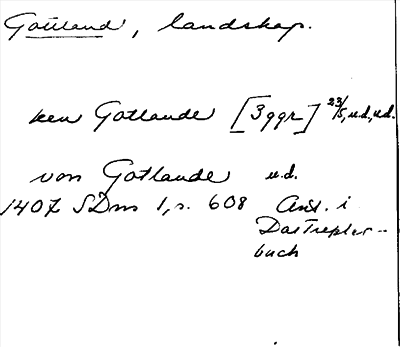 Gotland, landskap.
ken Gotlande [3 ggr] 23/5, u.d., u.d.
von Gotlande u.d.
1407 SDns 1, s. 608 Ant. i
Das Tresler-
buch